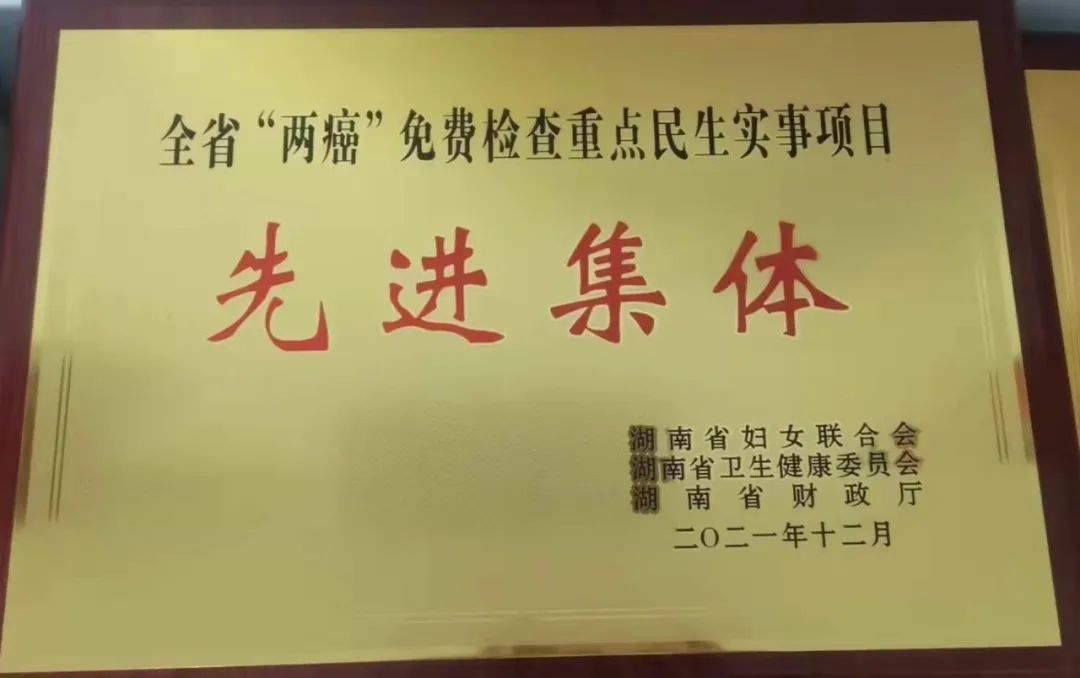 全省“两癌”免费检查重点民生实事项目
先进集体
湖南省妇女联合会
湖南省卫生健康委员会
湖南省财政厅
二〇二一年十二月